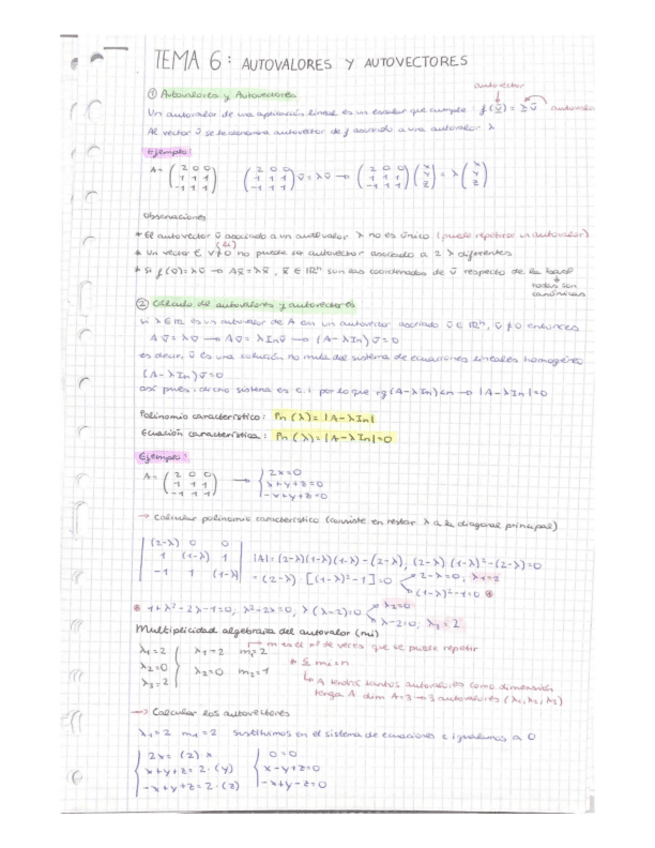 TEMA 6: AUTOVALORES Y AUTOVECTORES
autovector
① Autovalores y Autovectores
Un autovalor de una aplicación lineal es un escalar que cumple: f(v̄) = λv̄ autovalor
Al vector v̄ se le denomina autovector de f asociado a una autovalor λ
Ejemplo:
A = (2 0 0; 1 1 1; -1 1 1) (2 0 0; 1 1 1; -1 1 1) v̄ = λv̄ → (2 0 0; 1 1 1; -1 1 1) (x; y; z) = λ (x; y; z)
Observaciones
* El autovector v̄ asociado a un autovalor λ no es único (puede repetirse un autovalor)
* Un vector v̄≠0 no puede ser autovector asociado a 2 λ diferentes
* Si f(v̄)=λv̄ → Ax̄=λx̄, x̄ ∈ ℝⁿ son las coordenadas de v̄ respecto de la base
todas son
canónicas
② Cálculo de autovalores y autovectores
si λ∈ℝ es un autovalor de A con un autovector asociado v̄ ∈ ℝⁿ, v̄ ≠ 0 entonces
A v̄ = λv̄ → A v̄ = λ In v̄ → (A - λIn) v̄ = 0
es decir, v̄ es una solución no nula del sistema de ecuaciones lineales homogéneo
(A - λIn) v̄ = 0
así pues, dicho sistema es c.i por lo que rg(A-λIn)<n → |A-λIn|=0
Polinomio característico: Pn(λ) = |A-λIn|
Ecuación característica: Pn(λ) = |A-λIn|=0
Ejemplo:
A = (2 0 0; 1 1 1; -1 1 1) → {2x=0; x+y+z=0; -x+y+z=0
→ Calcular polinomio característico (consiste en restar λ a la diagonal principal)
|(2-λ) 0 0|
|1 (1-λ) 1| |A| = (2-λ)(1-λ)(1-λ) - (2-λ), (2-λ)(1-λ)²-(2-λ)=0
|-1 1 (1-λ)| = (2-λ)·[(1-λ)²-1]=0 2-λ=0, λ₁=2
(1-λ)²-1=0 ⊛
⊛ 1+λ²-2λ-1=0, λ²-2λ=0, λ(λ-2)=0 λ₂=0
λ-2=0, λ₃=2
Multiplicidad algebraica del autovalor (mi)
m es el nº de veces que se puede repetir
λ₁=2 λ₁=2 m₁=2
λ₂=0 λ₂=0 m₂=1 * Σ mi=n
λ₃=2 A tendrá tantos autovalores como dimensión
tenga A dim A=3 → 3 autovalores (λ₁, λ₂, λ₃)
→ Calcular los autovectores
λ₁=2 m₁=2 sustituimos en el sistema de ecuaciones e igualamos a 0
2x = (2) x 0=0
x+y+z = 2·(y) x-y+z=0
-x+y+z = 2·(z) -x+y-z=0